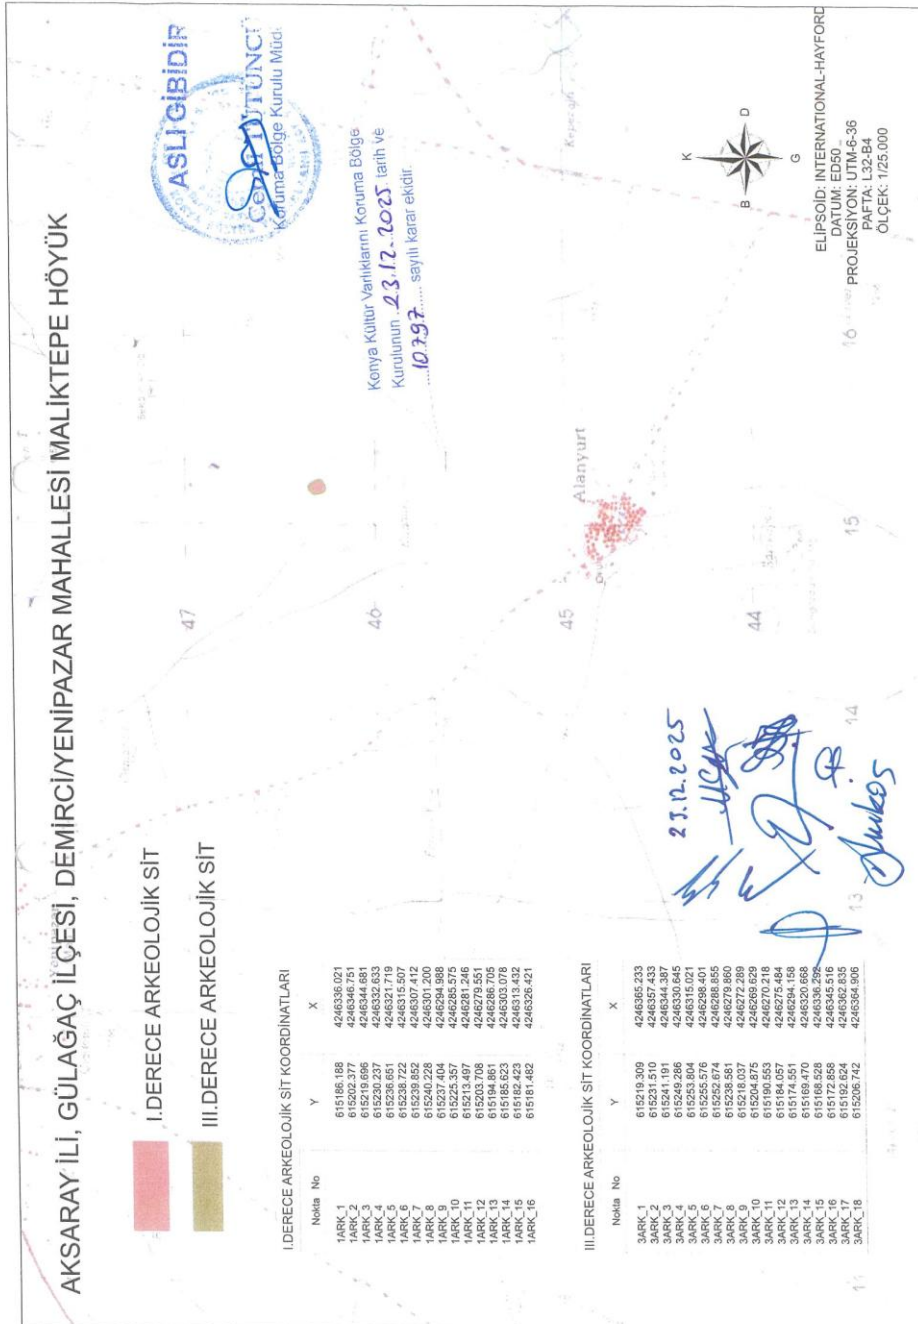 AKSARAY İLİ, GÜLAĞAÇ İLÇESİ, DEMİRCİ/YENİPAZAR MAHALLESİ MALİKTEPE HÖYÜK
ASLI GİBİDİR
TÜTÜNCÜ
Koruma Bölge Kurulu Müd.
Konya Kültür Varlıklarını Koruma Bölge
Kurulunun 23.12.2025 tarih ve
10797 sayılı karar ekidir.
I.DERECE ARKEOLOJİK SİT
III.DERECE ARKEOLOJİK SİT
I.DERECE ARKEOLOJİK SİT KOORDİNATLARI
Nokta No Y X
1ARK_1 615186.188 4246336.021
1ARK_2 615202.377 4246346.751
1ARK_3 615219.696 4246344.681
1ARK_4 615230.237 4246332.633
1ARK_5 615236.651 4246321.719
1ARK_6 615238.722 4246315.507
1ARK_7 615239.852 4246307.412
1ARK_8 615240.228 4246301.200
1ARK_9 615237.404 4246294.988
1ARK_10 615225.357 4246285.575
1ARK_11 615213.497 4246281.246
1ARK_12 615203.708 4246279.551
1ARK_13 615194.861 4246286.705
1ARK_14 615185.623 4246303.078
1ARK_15 615182.423 4246313.432
1ARK_16 615181.482 4246326.421
III.DERECE ARKEOLOJİK SİT KOORDİNATLARI
Nokta No Y X
3ARK_1 615219.309 4246365.233
3ARK_2 615231.510 4246357.433
3ARK_3 615241.191 4246344.387
3ARK_4 615249.286 4246330.645
3ARK_5 615253.804 4246315.021
3ARK_6 615255.576 4246298.401
3ARK_7 615252.674 4246288.655
3ARK_8 615238.581 4246279.860
3ARK_9 615218.037 4246272.289
3ARK_10 615204.875 4246269.629
3ARK_11 615190.553 4246270.218
3ARK_12 615184.057 4246275.484
3ARK_13 615174.551 4246294.158
3ARK_14 615169.470 4246320.668
3ARK_15 615168.528 4246336.292
3ARK_16 615172.858 4246345.516
3ARK_17 615192.624 4246362.835
3ARK_18 615206.742 4246364.906
23.12.2025
47
46
45
44
Alanyurt
13
14
15
16
K
B
D
G
ELİPSOİD: INTERNATIONAL-HAYFORD
DATUM: ED50
PROJEKSİYON: UTM-6-36
PAFTA: L32-B4
ÖLÇEK: 1/25.000